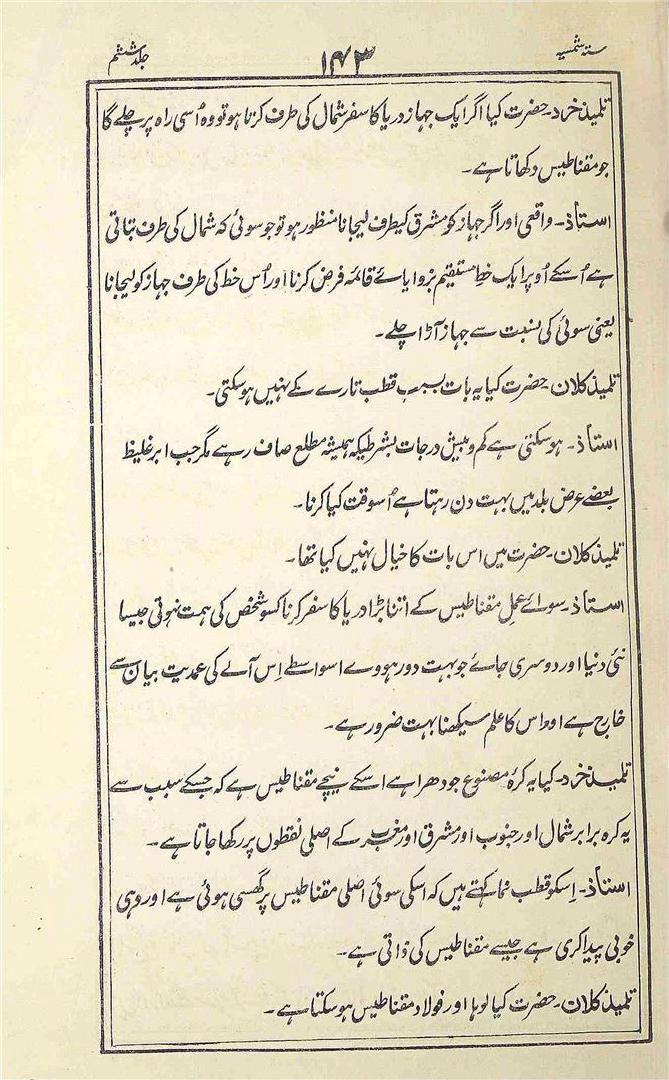 ستہ شمسیہ
۱۴۳
جلد ششم
تلمیذ خرد۔ حضرت کیا اگر ایک جہاز دریا کا سفر شمال کی طرف کرنا ہو تو وہ اُسی راہ پر چلے گا
جو مقناطیس دکھاتا ہے۔
استاذ۔ واقعی اور اگر جہاز کو مشرق کیطرف لیجانا منظور ہو تو جو سوئی کہ شمال کی طرف بتاتی
ہے اُسکے اُوپر ایک خطِ مستقیم بزوایائے قائمہ فرض کرنا اور اُس خط کی طرف جہاز کو لیجانا
یعنی سوئی کی نسبت سے جہاز آڑا چلے۔
تلمیذ کلان۔ حضرت کیا یہ بات بسبب قطب تارے کے نہیں ہو سکتی۔
استاذ۔ ہو سکتی ہے کم و بیش درجات بشرطیکہ ہمیشہ مطلع صاف رہے مگر جب ابر غلیظ
بعضے عرض بلد میں بہت دن رہتا ہے اُسوقت کیا کرنا۔
تلمیذ کلان۔ حضرت میں اس بات کا خیال نہیں کیا تھا۔
استاذ۔ سوائے عمل مقناطیس کے اتنا بڑا دریا کا سفر کرنا کسو شخص کی ہمت نہوتی جیسا
نئی دنیا اور دوسری جائے جو بہت دور ہووے اسواسطے اِس آلے کی عمدیت بیان سے
خارج ہے اور اس کا علم سیکھنا بہت ضرور ہے۔
تلمیذ خرد۔ کیا یہ کرۂ مصنوع جو دھرا ہے اسکے نیچے مقناطیس ہے کہ جسکے سبب سے
یہ کرہ برابر شمال اور جنوب اور مشرق اور مغرب کے اصلی نقطوں پر رکھا جاتا ہے۔
استاذ۔ اِسکو قطب نما کہتے ہیں کہ اسکی سوئی اصلی مقناطیس پر گھسی ہوئی ہے اور وہی
خوبی پیدا کری ہے جیسے مقناطیس کی ذاتی ہے۔
تلمیذ کلان۔ حضرت کیا لوہا اور فولاد مقناطیس ہو سکتا ہے۔